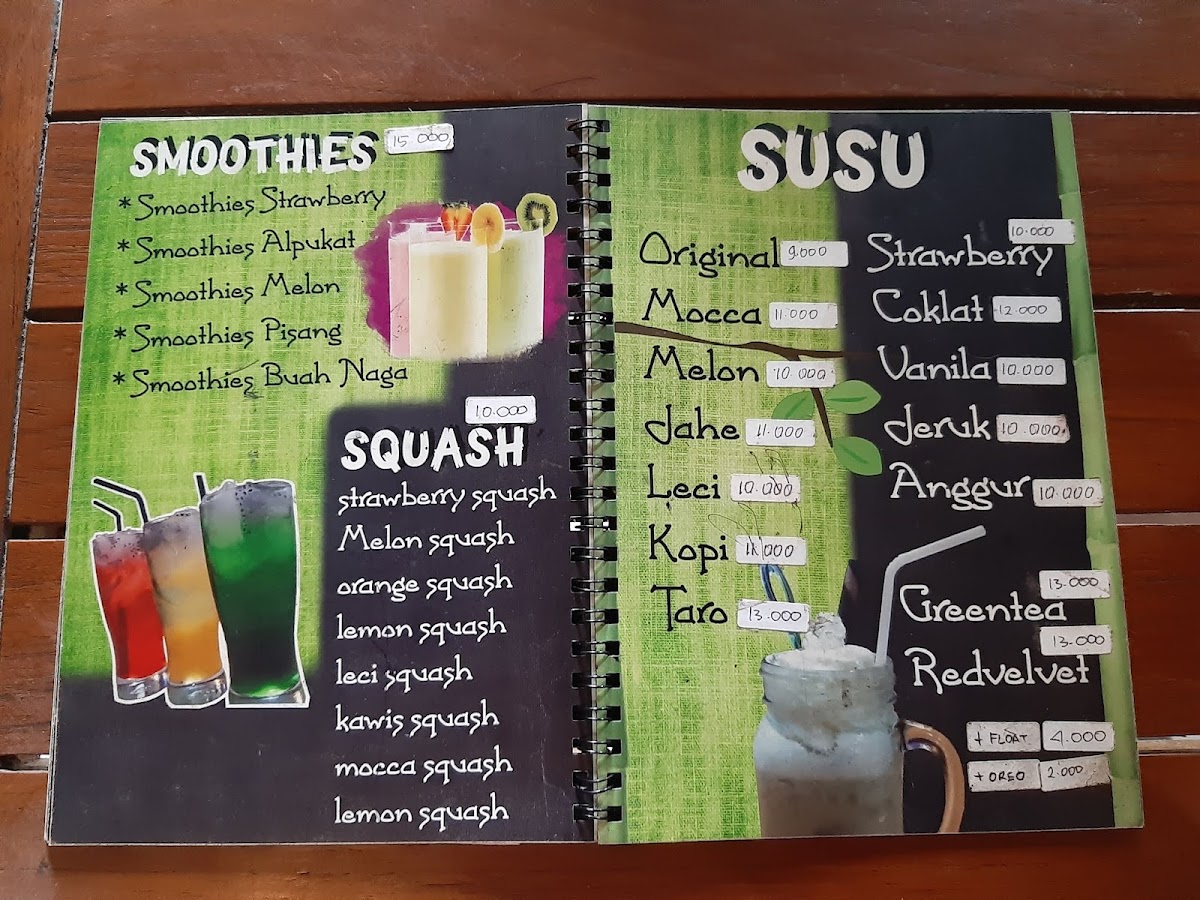 SMOOTHIES 15.000
* Smoothies Strawberry
* Smoothies Alpukat
* Smoothies Melon
* Smoothies Pisang
* Smoothies Buah Naga
10.000
SQUASH
strawberry squash
Melon squash
orange squash
lemon squash
leci squash
kawis squash
mocca squash
lemon squash
SUSU
Original 9.000
Mocca 11.000
Melon 10.000
Jahe 11.000
Leci 10.000
Kopi 11.000
Taro 13.000
10.000
Strawberry
Coklat 12.000
Vanila 10.000
Jeruk 10.000
Anggur 10.000
13.000
Greentea
13.000
Redvelvet
+ FLOAT 4.000
+ OREO 2.000